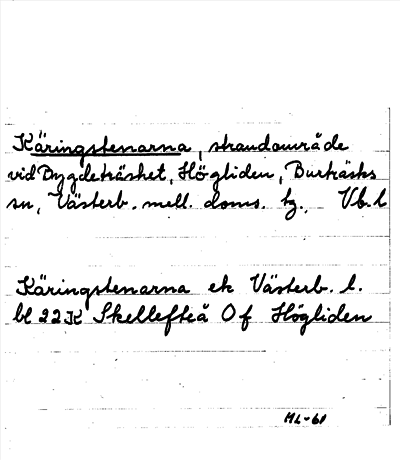 Käringstenarna, strandområde
vid Bygdeträsket, Högliden, Burträsks
sn, Västerb. mell. doms. tg. Vb. l
Käringstenarna ek Västerb. l.
bl 22 K Skellefteå Of Högliden
ML-61